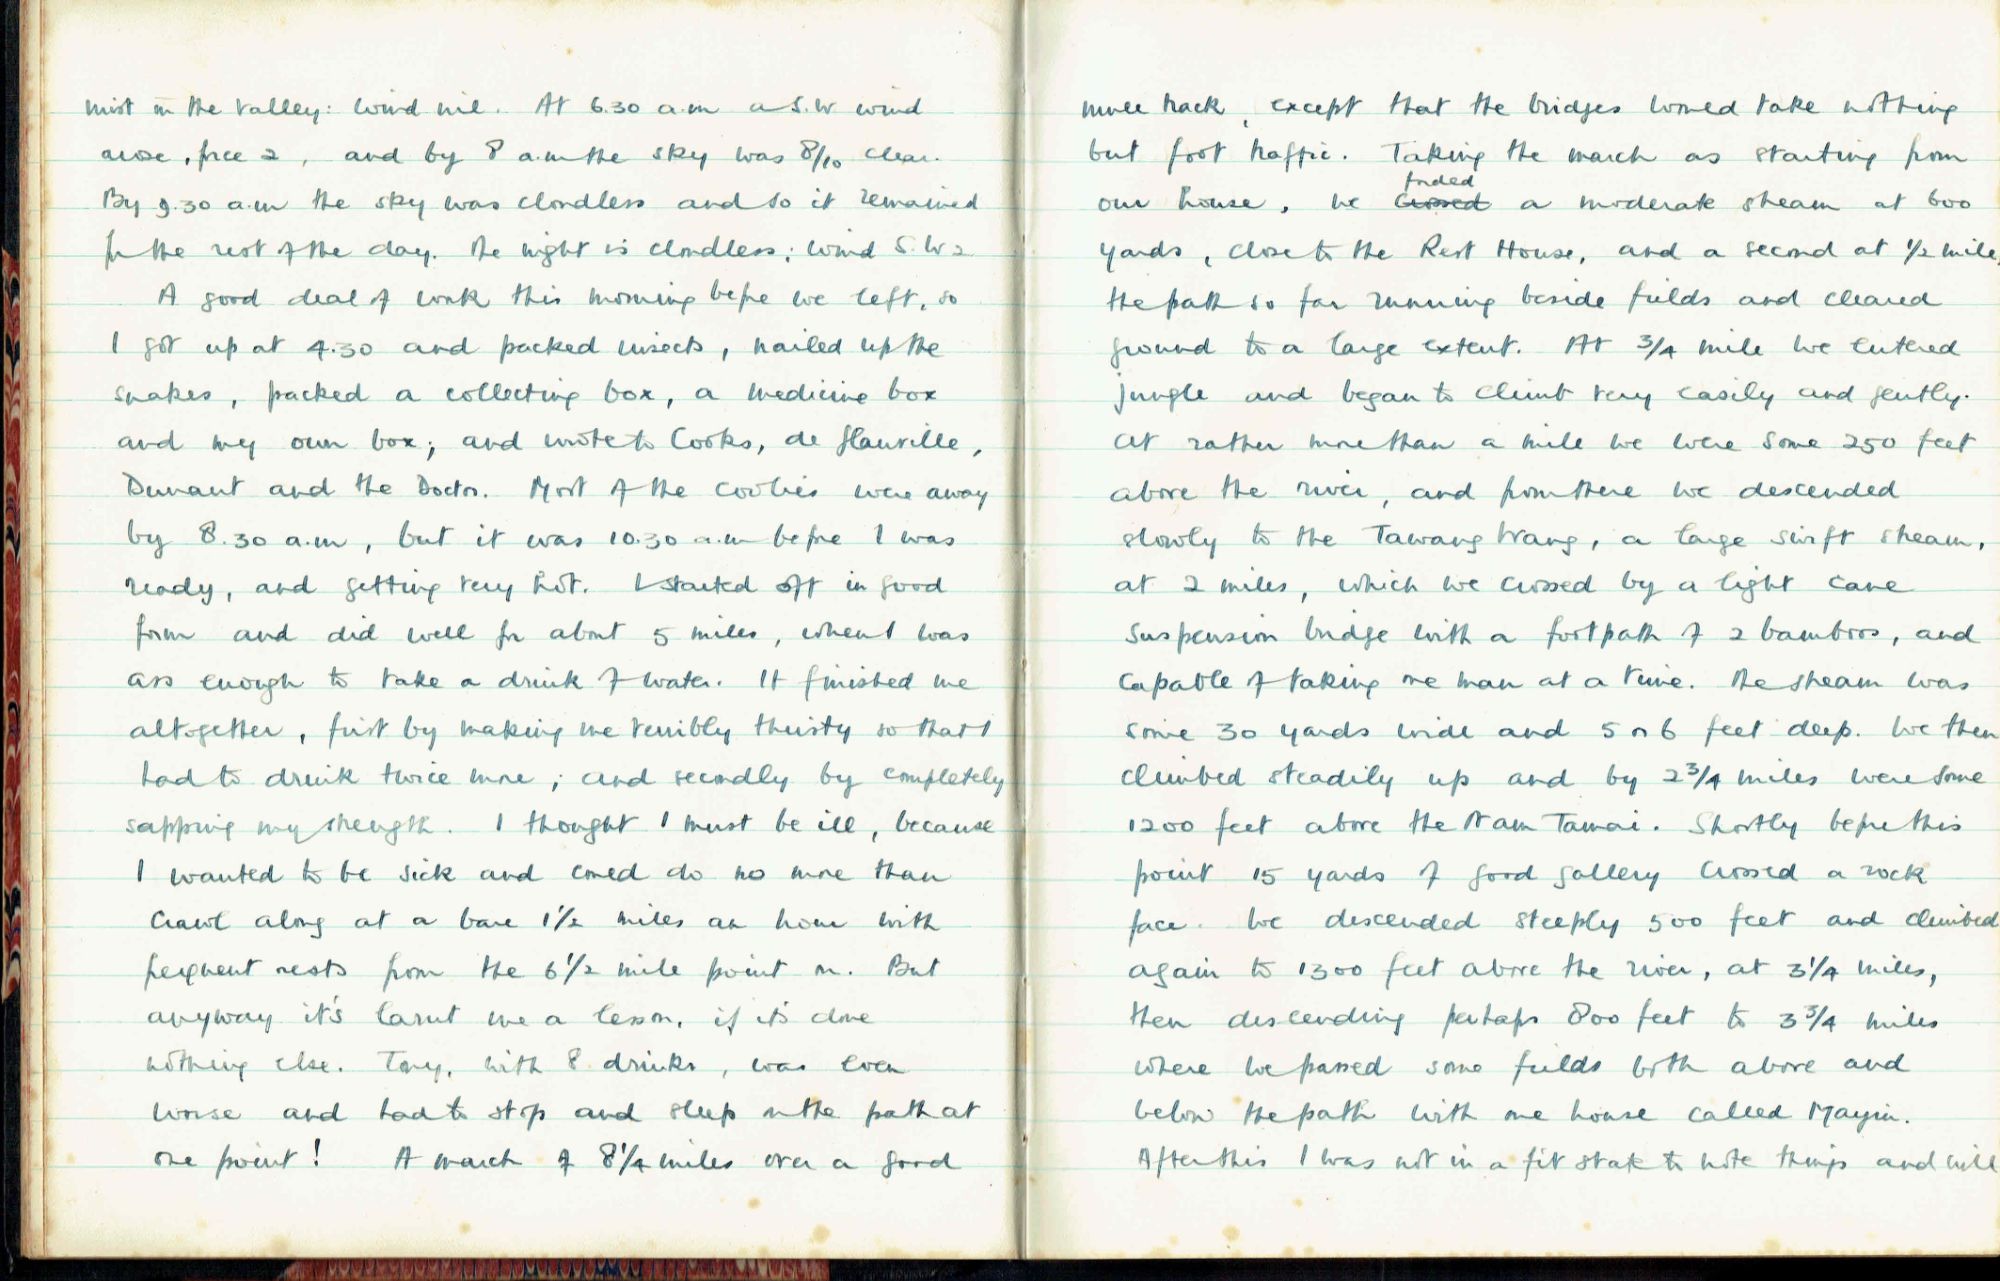 mist in the valley: wind nil. At 6.30 a.m a S.W wind
arose, force 2, and by 8 a.m the sky was 8/10 clear.
By 9.30 a.m the sky was cloudless and so it remained
for the rest of the day. The night is cloudless; wind S.W 2
A good deal of work this morning before we left, so
I got up at 4.30 and packed insects, nailed up the
snakes, packed a collecting box, a medicine box
and my own box; and wrote to Cooks, de Glanville,
Durant and the Doctor. Most of the coolies were away
by 8.30 a.m, but it was 10.30 a.m before I was
ready, and getting very hot. I started off in good
form and did well for about 5 miles, when I was
ass enough to take a drink of water. It finished me
altogether, first by making me terribly thirsty so that I
had to drink twice more; and secondly by completely
sapping my strength. I thought I must be ill, because
I wanted to be sick and could do no more than
crawl along at a bare 1 1/2 miles an hour with
frequent rests from the 6 1/2 mile point on. But
anyway it's larnt me a lesson, if it's done
nothing else. Tony, with 8 drinks, was even
worse and had to stop and sleep on the path at
one point! A march of 8 1/4 miles over a good
mule track, except that the bridges would take nothing
but foot traffic. Taking the march as starting from
forded
our house, we crossed a moderate stream at 600
yards, close to the Rest House, and a second at 1/2 mile,
the path so far running beside fields and cleared
ground to a large extent. At 3/4 mile we entered
jungle and began to climb very easily and gently.
At rather more than a mile we were some 250 feet
above the river, and from there we descended
slowly to the Tawang Wang, a large swift stream,
at 2 miles, which we crossed by a light cane
suspension bridge with a footpath of 2 bamboos, and
capable of taking one man at a time. The stream was
some 30 yards wide and 5 or 6 feet deep. We then
climbed steadily up and by 2 3/4 miles were some
1200 feet above the Nam Tamai. Shortly before this
point 15 yards of good gallery crossed a rock
face. We descended steeply 500 feet and climbed
again to 1300 feet above the river, at 3 1/4 miles,
then descending perhaps 800 feet to 3 3/4 miles
where we passed some fields both above and
below the path with one house called Mayin.
After this I was not in a fit state to note things and will